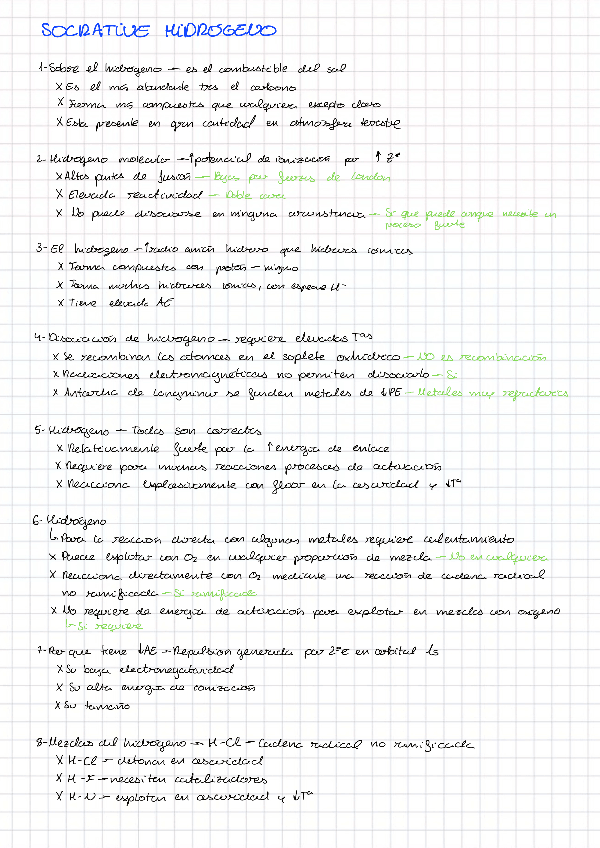 SOCRATIVE HIDROGENO
1- Sobre el hidrogeno → es el combustible del sol
X Es el mas abundante tras el carbono
X Forma mas compuestos que cualquiera excepto cloro
X Esta presente en gran cantidad en atmosfera terrestre
2- Hidrogeno molecular → ↑potencial de ionización por ↑ Z*
X Altos puntos de fusión → Bajos por fuerzas de London
X Elevada reactividad → Doble
X No puede disociarse en ninguna circunstancia → Si que puede aunque necesite un
proceso fuerte
3- El hidrogeno → ↑radio anión hidruro que hidruros iónicos
X Forma compuestos con protón → ninguno
X Forma muchos hidruros iónicos, con especie H⁻
X Tiene elevada AE
4- Disociación de hidrogeno → requiere elevadas Tªs
X Se recombinan los átomos en el soplete oxhídrico → NO es recombinación
X Radiaciones electromagneticas no permiten disociarlo → Si
X Antorcha de Langmuir se funden metales de ↓PE → Metales muy refractarios
5- Hidrogeno → Todas son correctas
X Relativamente fuerte por la ↑energia de enlace
X Requiere para muchas reacciones procesos de activación
X Reacciona explosivamente con fluor en la oscuridad y ↓Tª
6- Hidrogeno
↳ Para la reacción directa con algunos metales requiere calentamiento
X Puede explotar con O₂ en cualquier proporción de mezcla → No en cualquiera
X Reacciona directamente con O₂ mediante una reacción de cadena radical
no ramificada → Si ramificada
X No requiere de energia de activación para explotar en mezclas con oxigeno
↳ Si requiere
7- Por que tiene ↓AE → Repulsion generada por 2º e⁻ en orbital 1s
X Su baja electronegatividad
X Su alta energia de ionización
X Su tamaño
8- Mezclas del hidrogeno → H-Cl → Cadena radical no ramificada
X H-Cl → detonan en oscuridad
X H-F → necesitan catalizadores
X H-N → explotan en oscuridad y ↓Tª